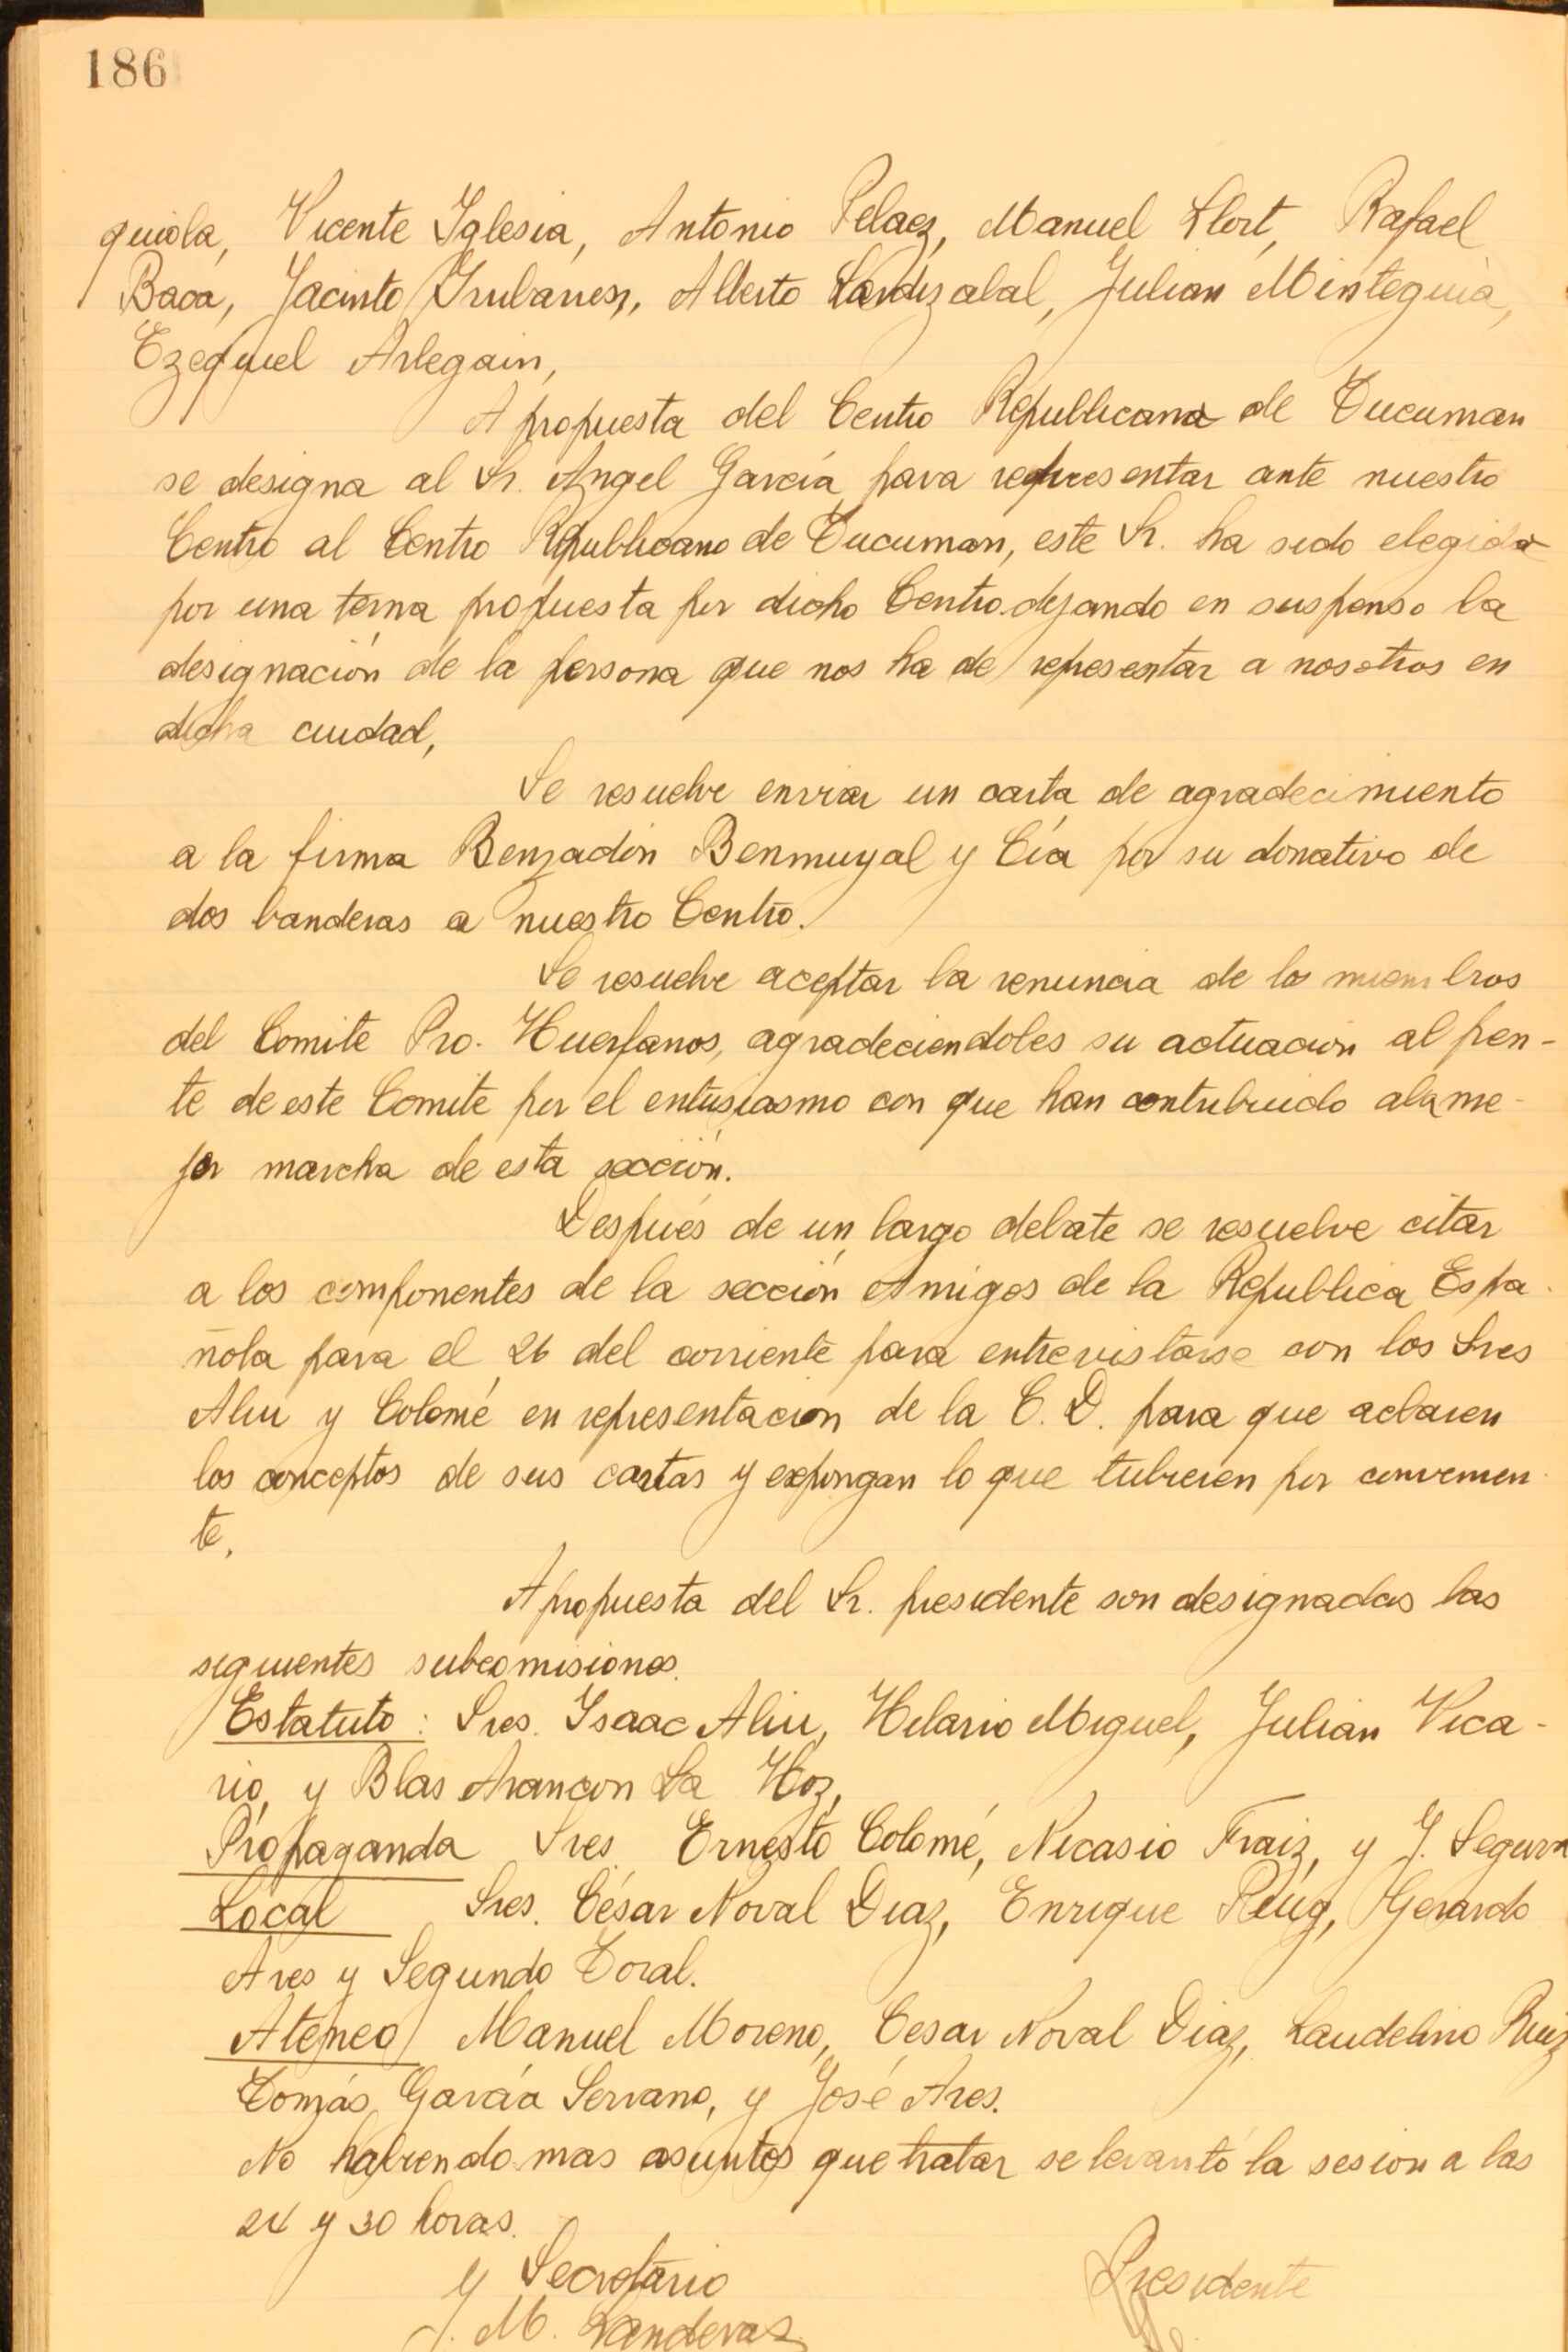 186
guiola, Vicente Yglesia, Antonio Pelaez, Manuel Llort, Rafael
Baoa, Jacinto Yrubarren, Alberto Lardizabal, Julian Minteguia,
Ezequiel Arlegain,
A propuesta del Centro Republicano de Tucuman
se designa al Sr. Angel García para representar ante nuestro
Centro al Centro Republicano de Tucuman, este Sr. ha sido elegido
por una terna propuesta por dicho Centro dejando en suspenso la
designación de la persona que nos ha de representar a nosotros en
dicha ciudad,
Se resuelve enviar un carta de agradecimiento
a la firma Benzadón Benmuyal y Cía por su donativo de
dos banderas a nuestro Centro.
Se resuelve aceptar la renuncia de los miembros
del Comite Pro. Huerfanos, agradeciendoles su actuacion al fren-
te de este Comite por el entusiasmo con que han contribuido a la me-
jor marcha de esta sección.
Después de un largo debate se resuelve citar
a los componentes de la sección Amigos de la Republica Espa-
ñola para el 26 del corriente para entrevistarse con los Sres
Aliu y Colomé en representacion de la C. D. para que aclaren
los conceptos de sus cartas y expongan lo que tubieren por convenien-
te,
A propuesta del Sr. presidente son designadas las
siguientes subcomisiones.
Estatuto: Sres. Ysaac Aliu, Hilario Miguel, Julian Vica-
rio, y Blas Arancon La Hoz,
Propaganda Sres. Ernesto Colomé, Nicasio Fraiz, y J. Segura
Local Sres. César Noval Diaz, Enrique Puig, Gerardo
Ares y Segundo Toral.
Ateneo Manuel Moreno, Cesar Noval Diaz, Laudelino Ruiz
Tomás García Serrano, y José Ares.
No habiendo mas asuntos que tratar se levantó la sesion a las
24 y 30 horas.
y Secretario Presidente
J. M. Landeras